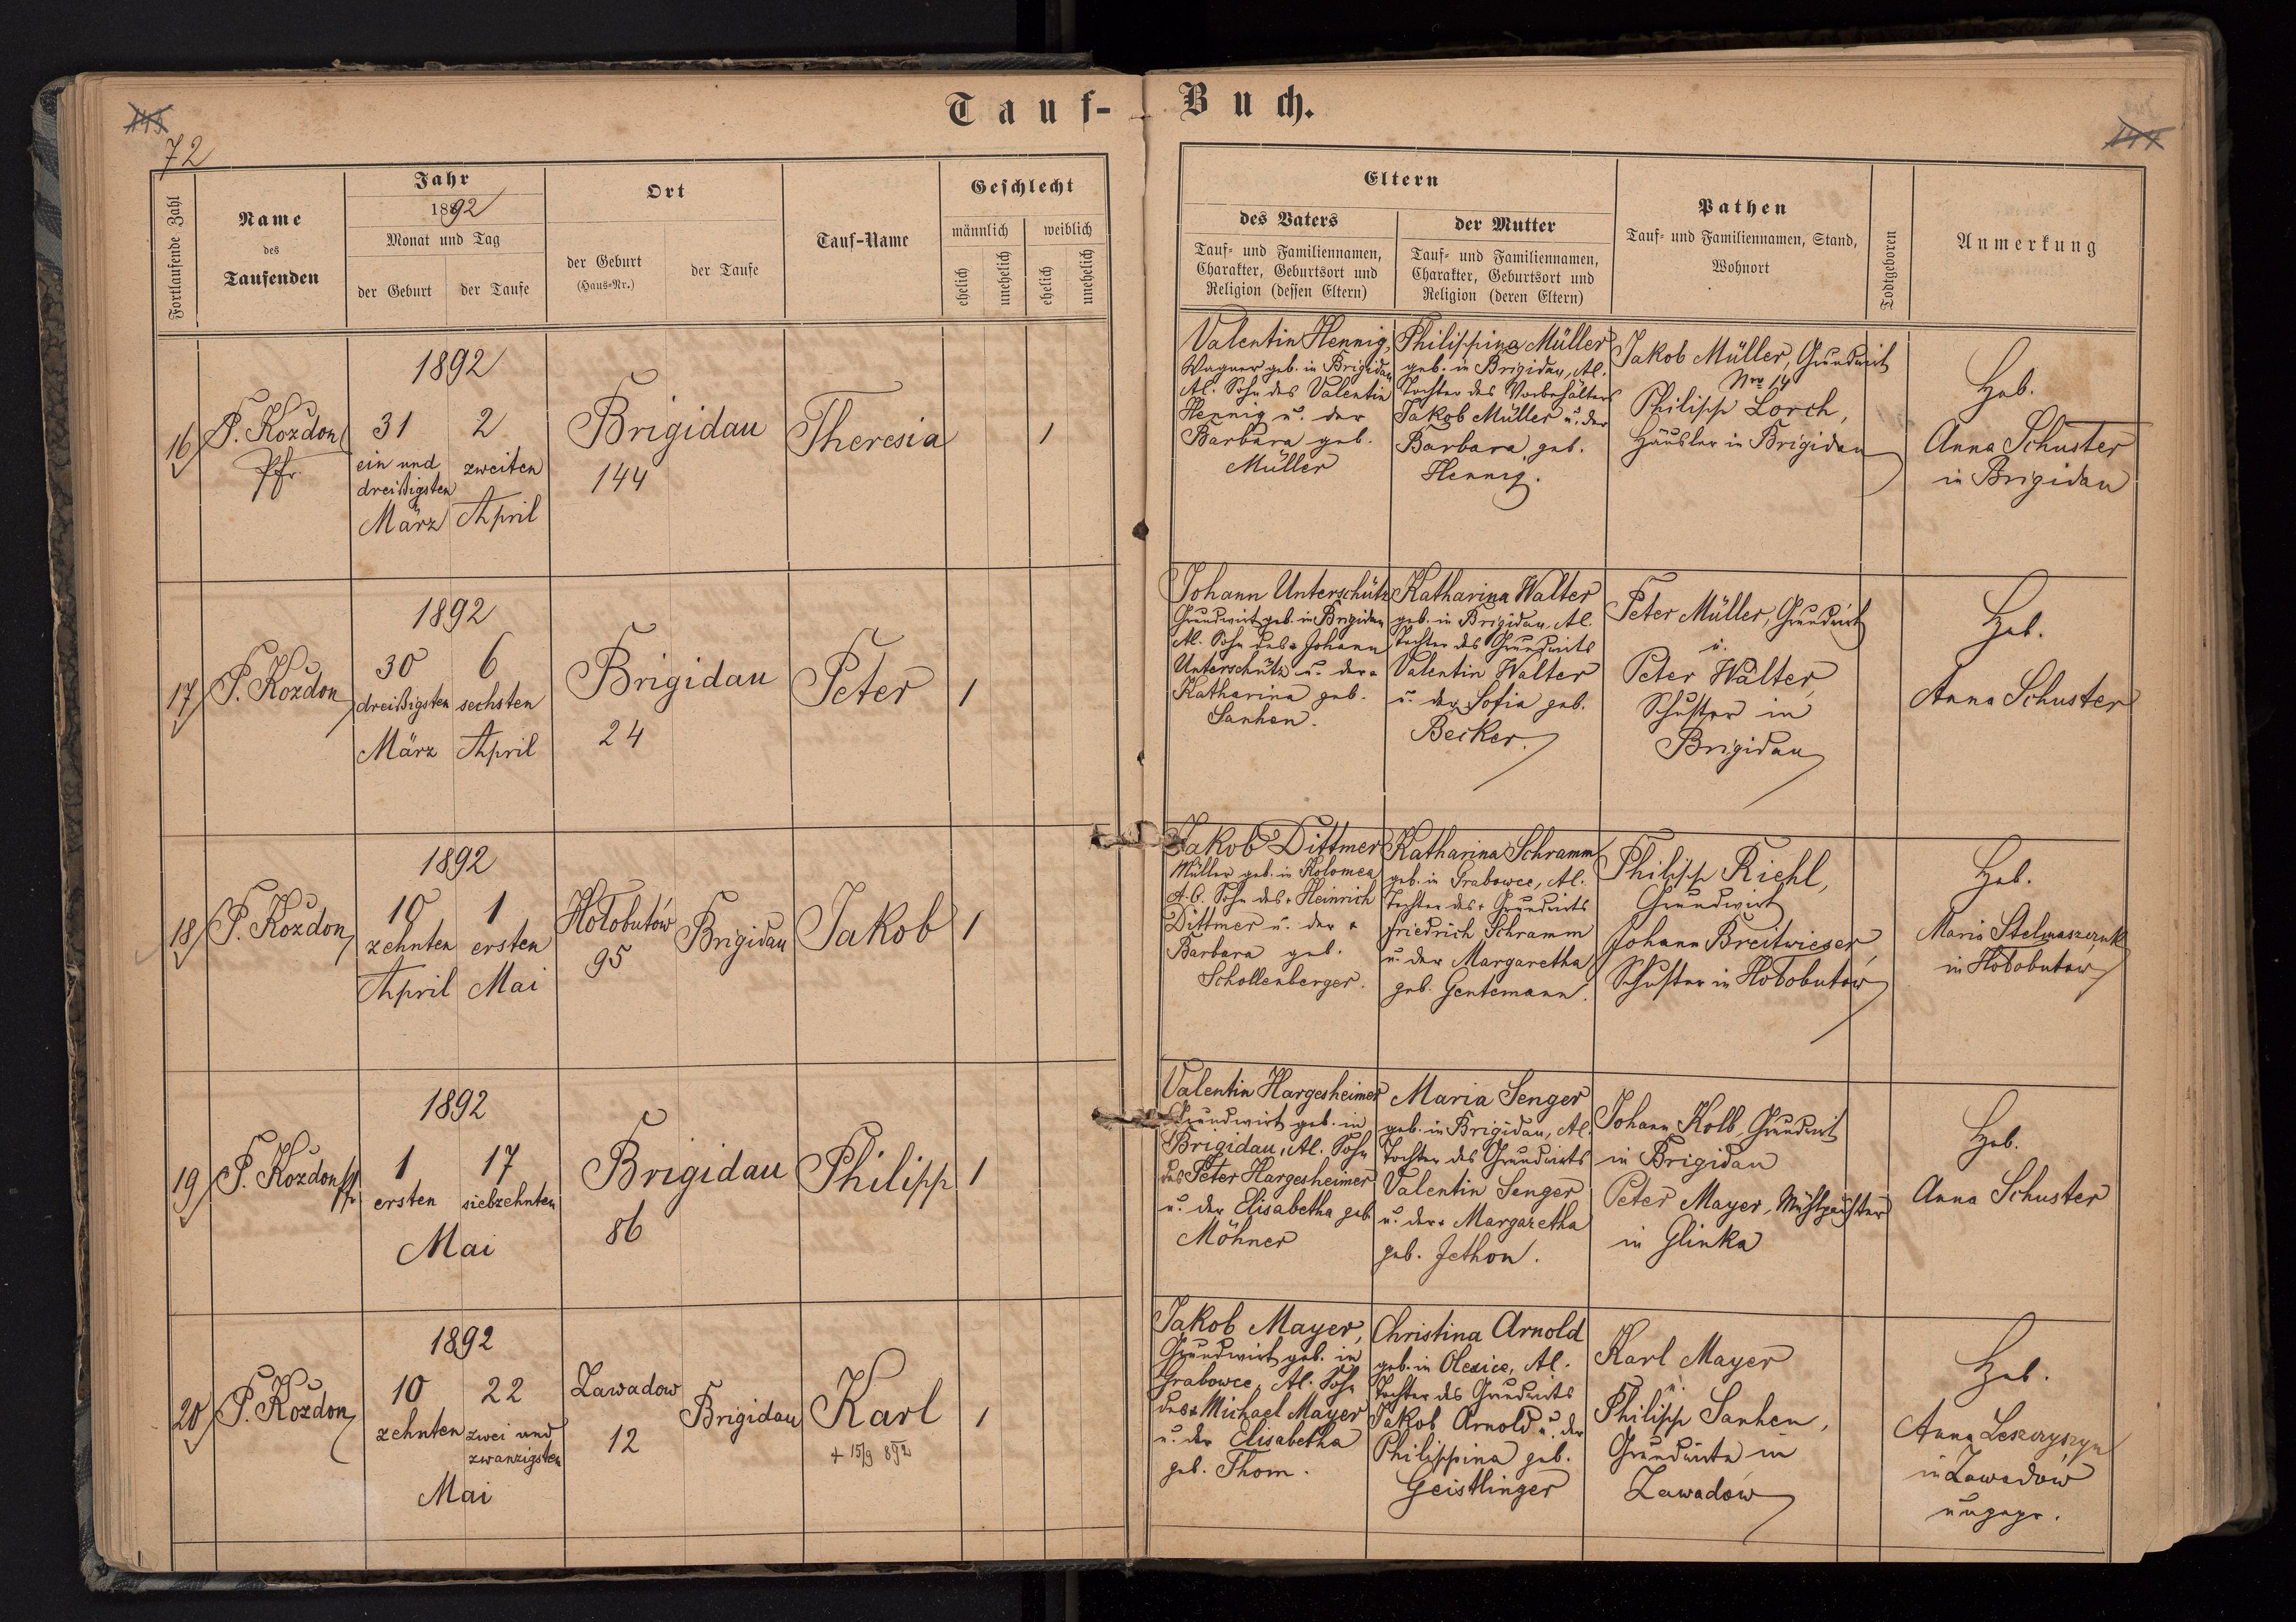 Tauf-Buch.
72
Fortlaufende Zahl
Name
des
Taufenden
Jahr
1892
Monat und Tag
der Geburt
der Taufe
Ort
der Geburt
(Haus-Nr.)
der Taufe
Tauf-Name
Geschlecht
männlich
weiblich
ehelich
unehelich
ehelich
unehelich
Eltern
des Vaters
Tauf- und Familiennamen,
Charakter, Geburtsort und
Religion (dessen Eltern)
der Mutter
Tauf- und Familiennamen,
Charakter, Geburtsort und
Religion (deren Eltern)
Pathen
Tauf- und Familiennamen, Stand,
Wohnort
Todtgeboren
Anmerkung
16
P. Kozdon
Pfr
1892
31
ein und
dreißigsten
März
2
zweiten
April
Brigidau
144
Theresia
1
Valentin Hennig,
Wagner geb. in Brigidau
Al. Sohn des Valentin
Hennig u. der
Barbara geb.
Müller
Philippina Müller
geb. in Brigidau, Al.
Tochter des Vorbehälters
Jakob Müller u. der
Barbara geb.
Hennig.
Jakob Müller, Grundwirt
Nro 14
Philipp Lorch,
Häusler in Brigidau
Heb.
Anna Schuster
in Brigidau
17
P. Kozdon
1892
30
dreißigsten
März
6
sechsten
April
Brigidau
24
Peter
1
Johann Unterschütz
Grundwirt geb. in Brigidau
Al. Sohn des + Johann
Unterschütz u. der +
Katharina geb.
Sanhen.
Katharina Walter
geb. in Brigidau, Al.
Tochter des Grundwirts
Valentin Walter
u. der Sofia geb.
Becker.
Peter Müller, Grundwirt
u.
Peter Walter,
Schuster in
Brigidau
Heb.
Anna Schuster
18
P. Kozdon
1892
10
zehnten
April
1
ersten
Mai
Hołobutów
95
Brigidau
Jakob
1
Jakob Dittmer
Müller geb. in Kolomea
A.C. Sohn des + Heinrich
Dittmer u. der +
Barbara geb.
Schollenberger.
Katharina Schramm
geb. in Grabowce, Al.
Tochter des + Grundwirts
Friedrich Schramm
u. der Margaretha
geb. Gentemann.
Philipp Riehl,
Grundwirt
Johann Breitwieser,
Schuster in Hołobutów
Heb.
Maria Stelmaszczuk
in Hołobutow
19
P. Kozdon Pfr
1892
1
ersten
17
siebzehnten
Mai
Brigidau
86
Philipp
1
Valentin Hargesheimer
Grundwirt geb. in
Brigidau, Al. Sohn
des Peter Hargesheimer
u. der Elisabetha geb.
Möhner
Maria Senger
geb. in Brigidau, Al.
Tochter des Grundwirts
Valentin Senger
u. der + Margaretha
geb. Jethon.
Johann Kolb, Grundwirt
in Brigidau
Peter Mayer, Mühlpächter
in Glinka
Heb.
Anna Schuster
20
P. Kozdon
1892
10
zehnten
22
zwei und
zwanzigsten
Mai
Zawadow
12
Brigidau
Karl
+ 15/9 892
1
Jakob Mayer,
Grundwirt geb. in
Grabowce, Al. Sohn
des + Michael Mayer
u. der Elisabetha
geb. Thom.
Christina Arnold
geb. in Olexice, Al.
Tochter des Grundwirts
Jakob Arnold u. der
Philippina geb.
Geistlinger
Karl Mayer
u.
Philipp Sanhen,
Grundwirte in
Zawadów
Heb.
Anna Leszczyszyn
in Zawadów
ungepr.